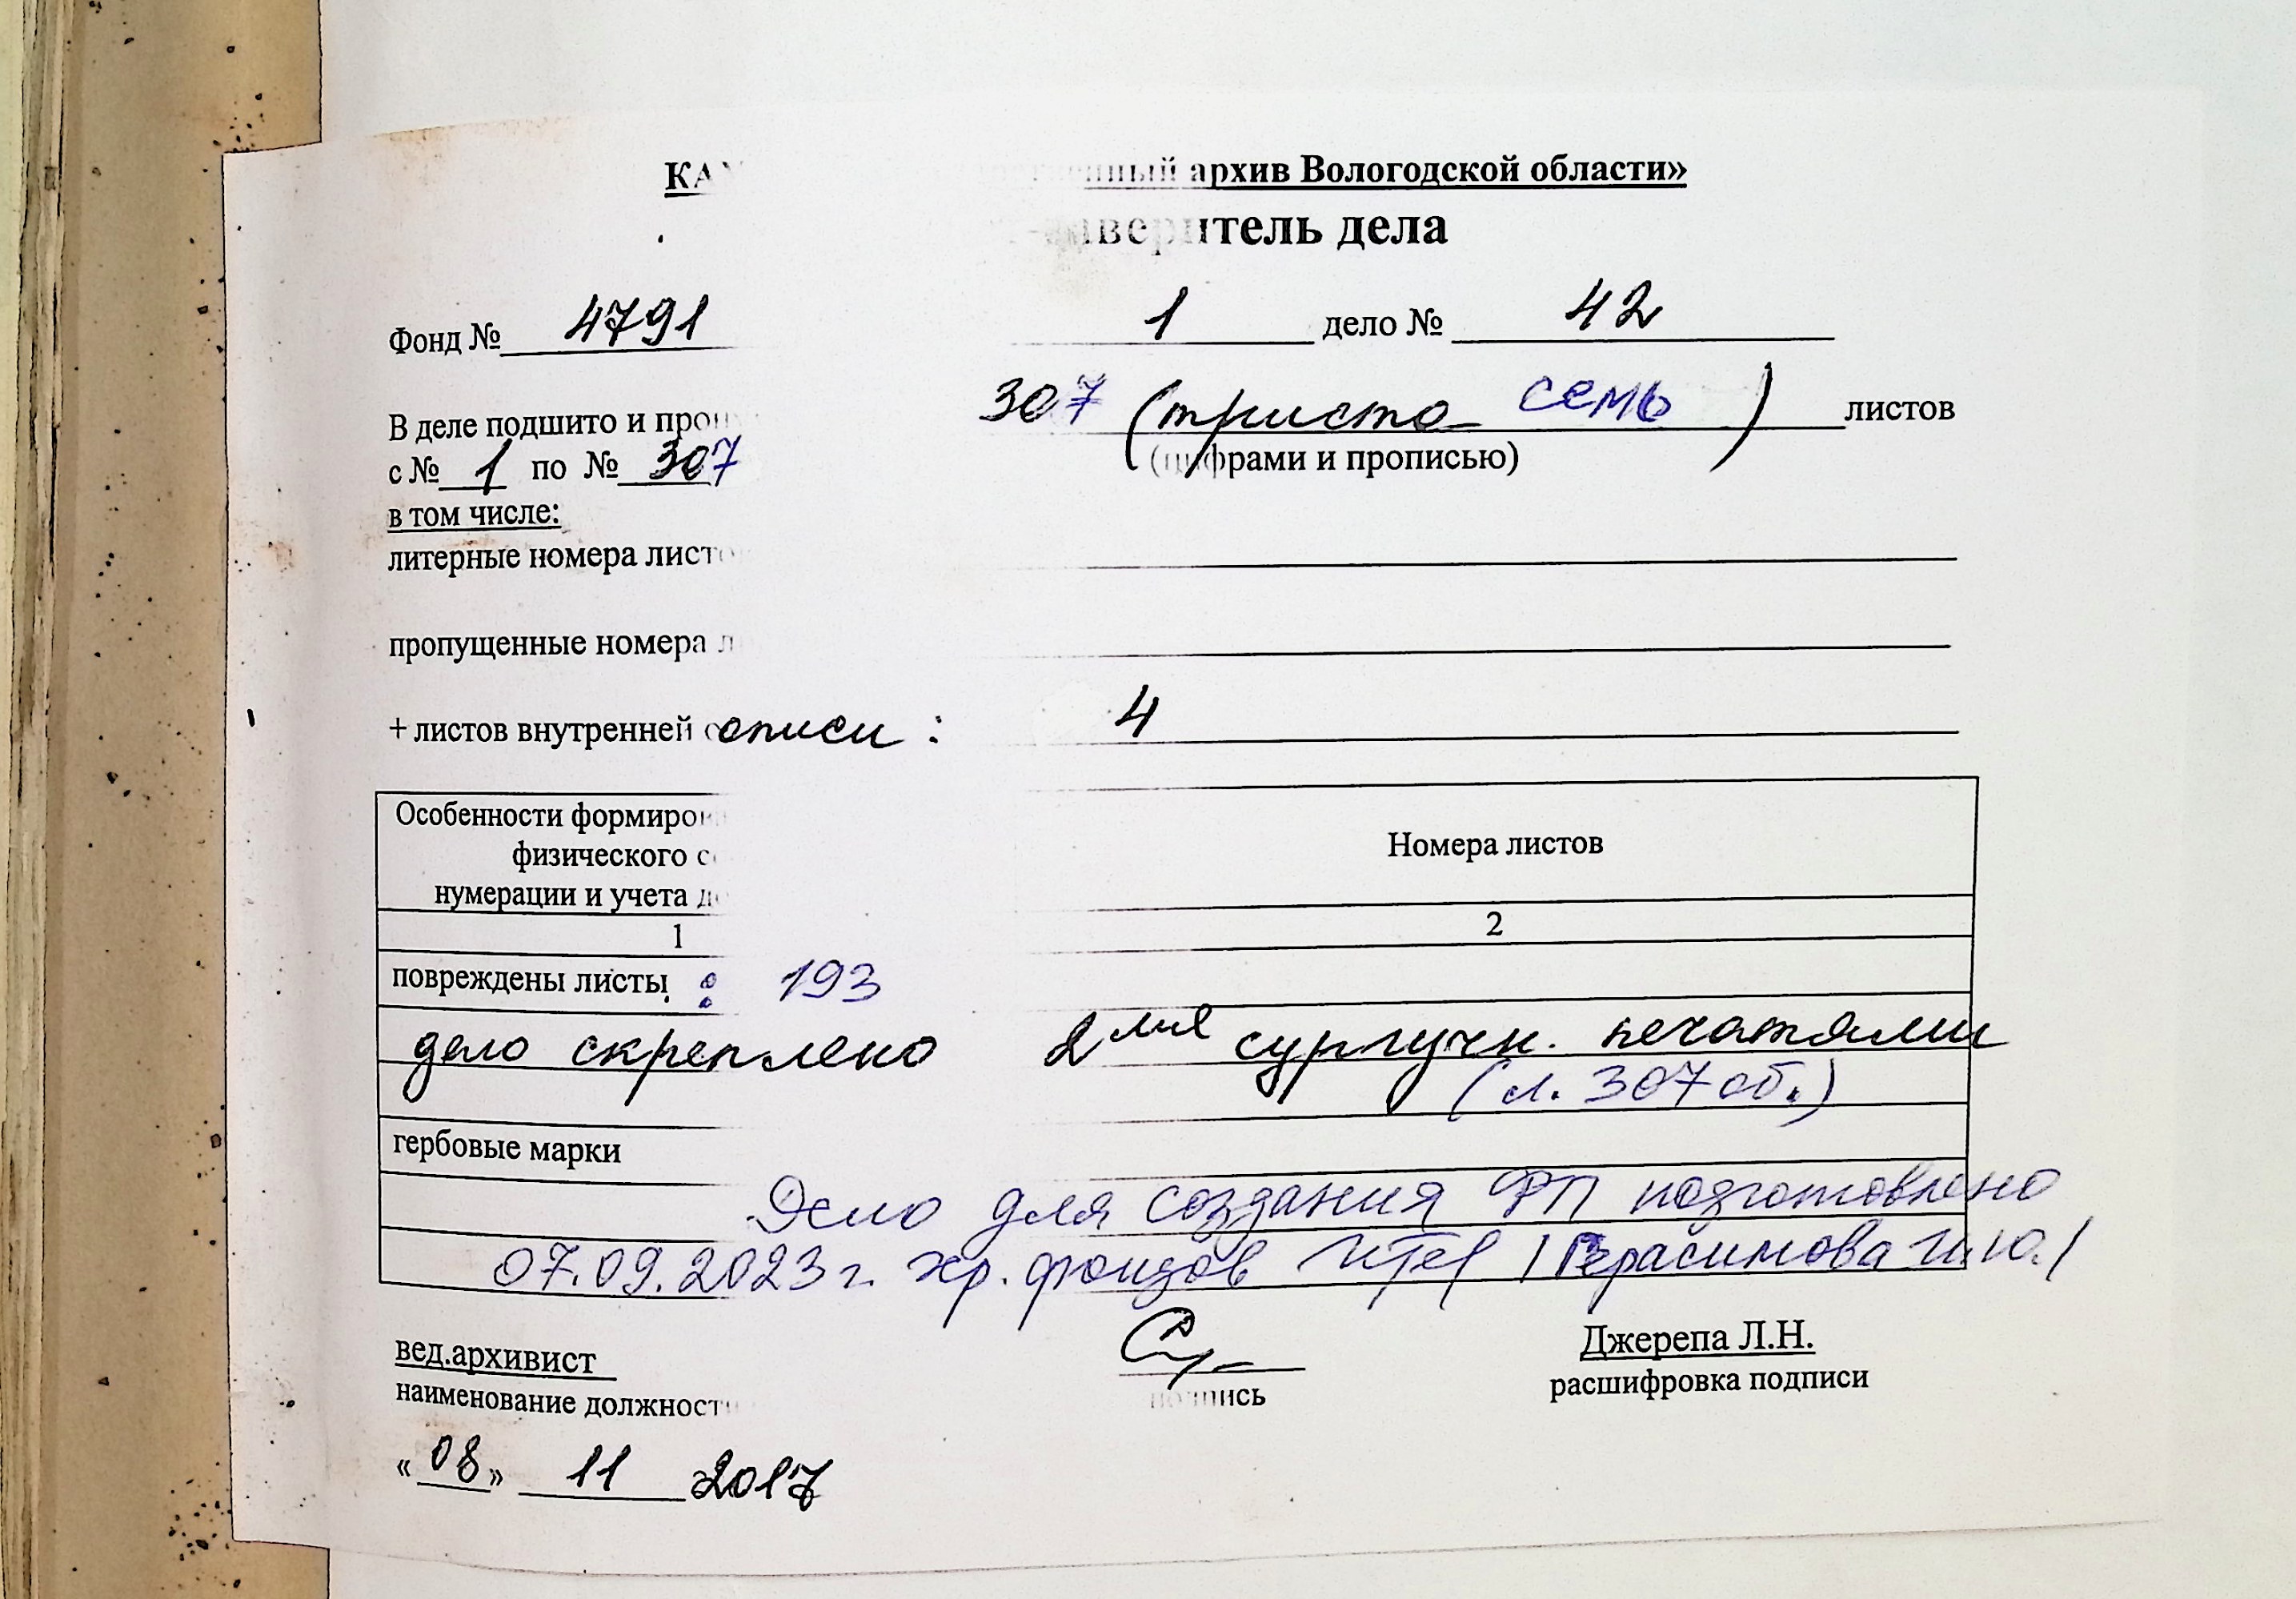 КА нный архив Вологодской области»
веритель дела
Фонд № 4791 1 дело № 42
В деле подшито и прон 307 (триста семь) листов
с № 1 по № 307 (цифрами и прописью)
в том числе:
литерные номера листо
пропущенные номера л
+ листов внутренней описи: 4
Особенности формиров
физического с
нумерации и учета д
Номера листов
1 2
повреждены листы: 193
дело скреплено 2мя сургучн. печатями
(л. 307 об.)
гербовые марки
Дело для создания ФП подготовлено
07.09.2023 г. хр. фондов /Герасимова И.Ю./
вед.архивист Джерепа Л.Н.
наименование должност подпись расшифровка подписи
«08» 11 2017